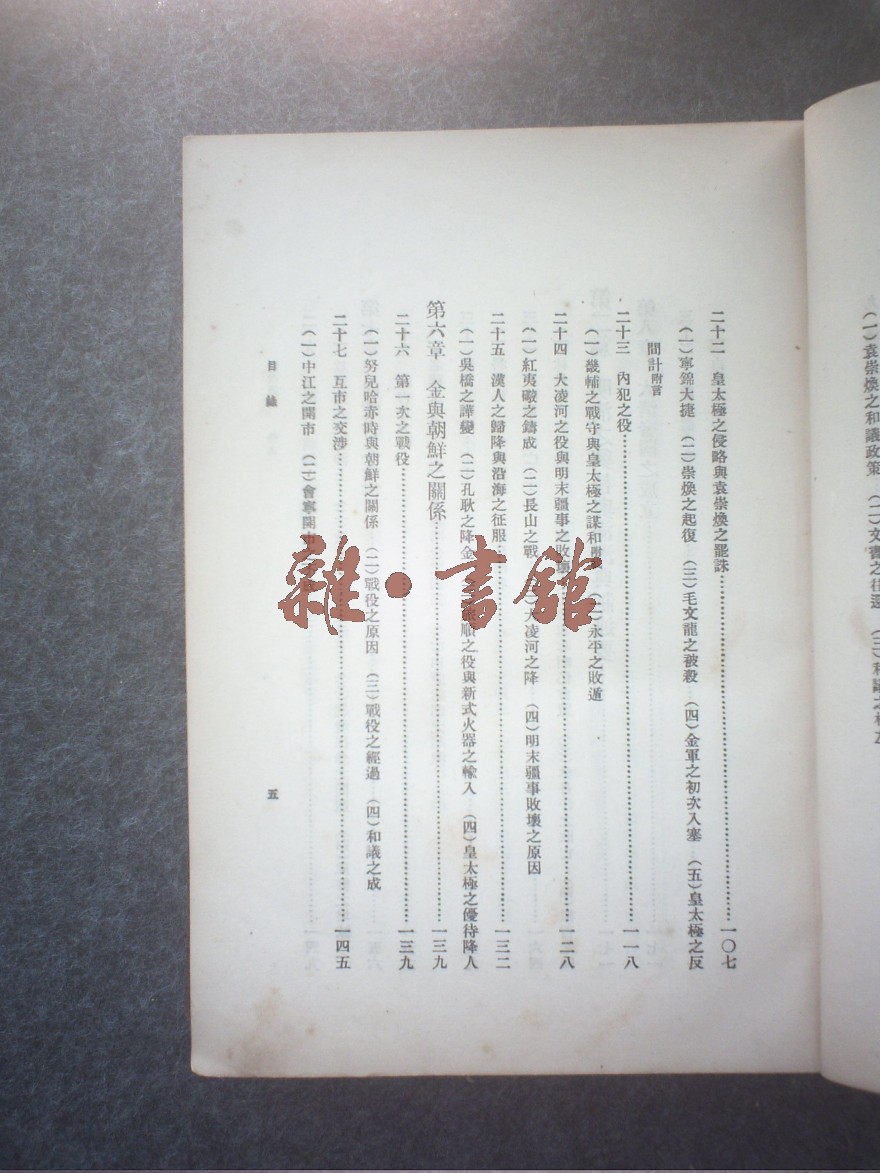 (一)袁崇煥之和議政策 (二)文書之往還 (三)和議之
二十二 皇太極之侵略與袁崇煥之罷誅…………一〇七
(一)寧錦大捷 (二)崇煥之起復 (三)毛文龍之被殺 (四)金軍之初次入塞 (五)皇太極之反
間計附言
二十三 內犯之役…………一一八
(一)畿輔之戰守與皇太極之謀和 (二)永平之敗遁
二十四 大凌河之役與明末疆事之敗壞…………一二八
(一)紅夷礮之鑄成 (二)長山之戰 (三)大凌河之降 (四)明末疆事敗壞之原因
二十五 漢人之歸降與沿海之征服…………一三二
(一)吳橋之譁變 (二)孔耿之降金 順之役與新式火器之輸入 (四)皇太極之優待降人
第六章 金與朝鮮之關係…………一三九
二十六 第一次之戰役…………一三九
(一)努兒哈赤時與朝鮮之關係 (二)戰役之原因 (三)戰役之經過 (四)和議之成
二十七 互市之交涉…………一四五
(一)中江之開市 (二)會寧開市
目錄
五
雜·書館